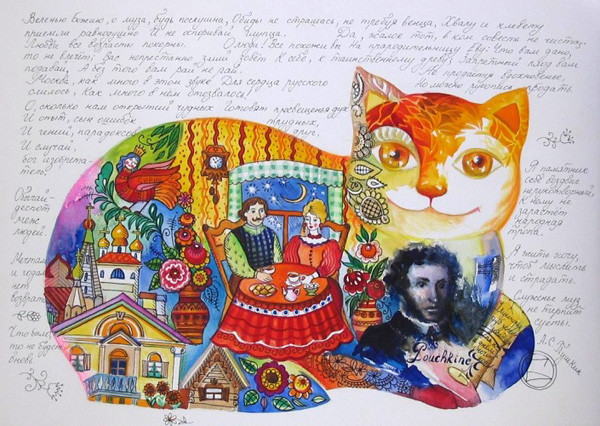 Веленью Божию, о муза, будь послушна, Обиды не страшась, не требуя венца, Хвалу и клевету
приемли равнодушно И не оспоривай глупца. Да, жалок тот, в ком совесть не чиста.
Любви все возрасты покорны. О люди! Все похожи вы на прародительницу Еву: Что вам дано,
то не влечёт; Вас непрестанно змий зовёт К себе, к таинственному древу; Запретный плод вам
подавай, А без того вам рай не рай. Не продаётся вдохновенье,
Москва, как много в этом звуке Для сердца русского Но можно рукопись продать.
слилось, Как много в нём отозвалось!
О, сколько нам открытий чудных Готовят просвещенья дух
И опыт, сын ошибок трудных,
И гений, парадоксов друг,
И случай,
бог изобрета-
тель.
Обычай
деспот
меж
людей.
Мечтам
и годам
нет
возврата
Что было,
то не будет
вновь
Я памятник
себе воздвиг
нерукотворный,
К нему не
зарастёт
народная
тропа.
Я жить хочу,
чтоб мыслить
и страдать.
Служенье муз
не терпит
суеты.
А.С.
Пушкин
Pouchkine